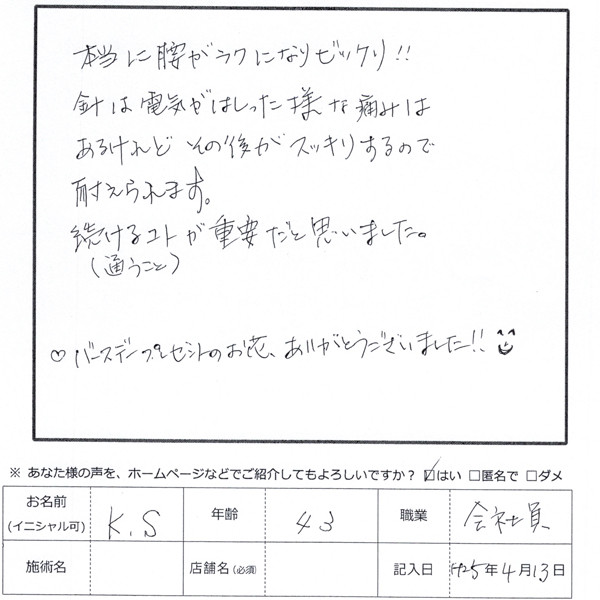 本当に腰がラクになりビックリ!!
針は電気がはしった様な痛みは
あるけれど その後がスッキリするので
耐えられます。
続けるコトが重要だと思いました。
(通うこと)
♡バースデープレゼントのお花、ありがとうございました!!
※ あなた様の声を、ホームページなどでご紹介してもよろしいですか? ☑はい □匿名で □ダメ
お名前(イニシャル可) K.S 年齢 43 職業 会社員
施術名 店舗名(必須) 記入日 25年4月13日